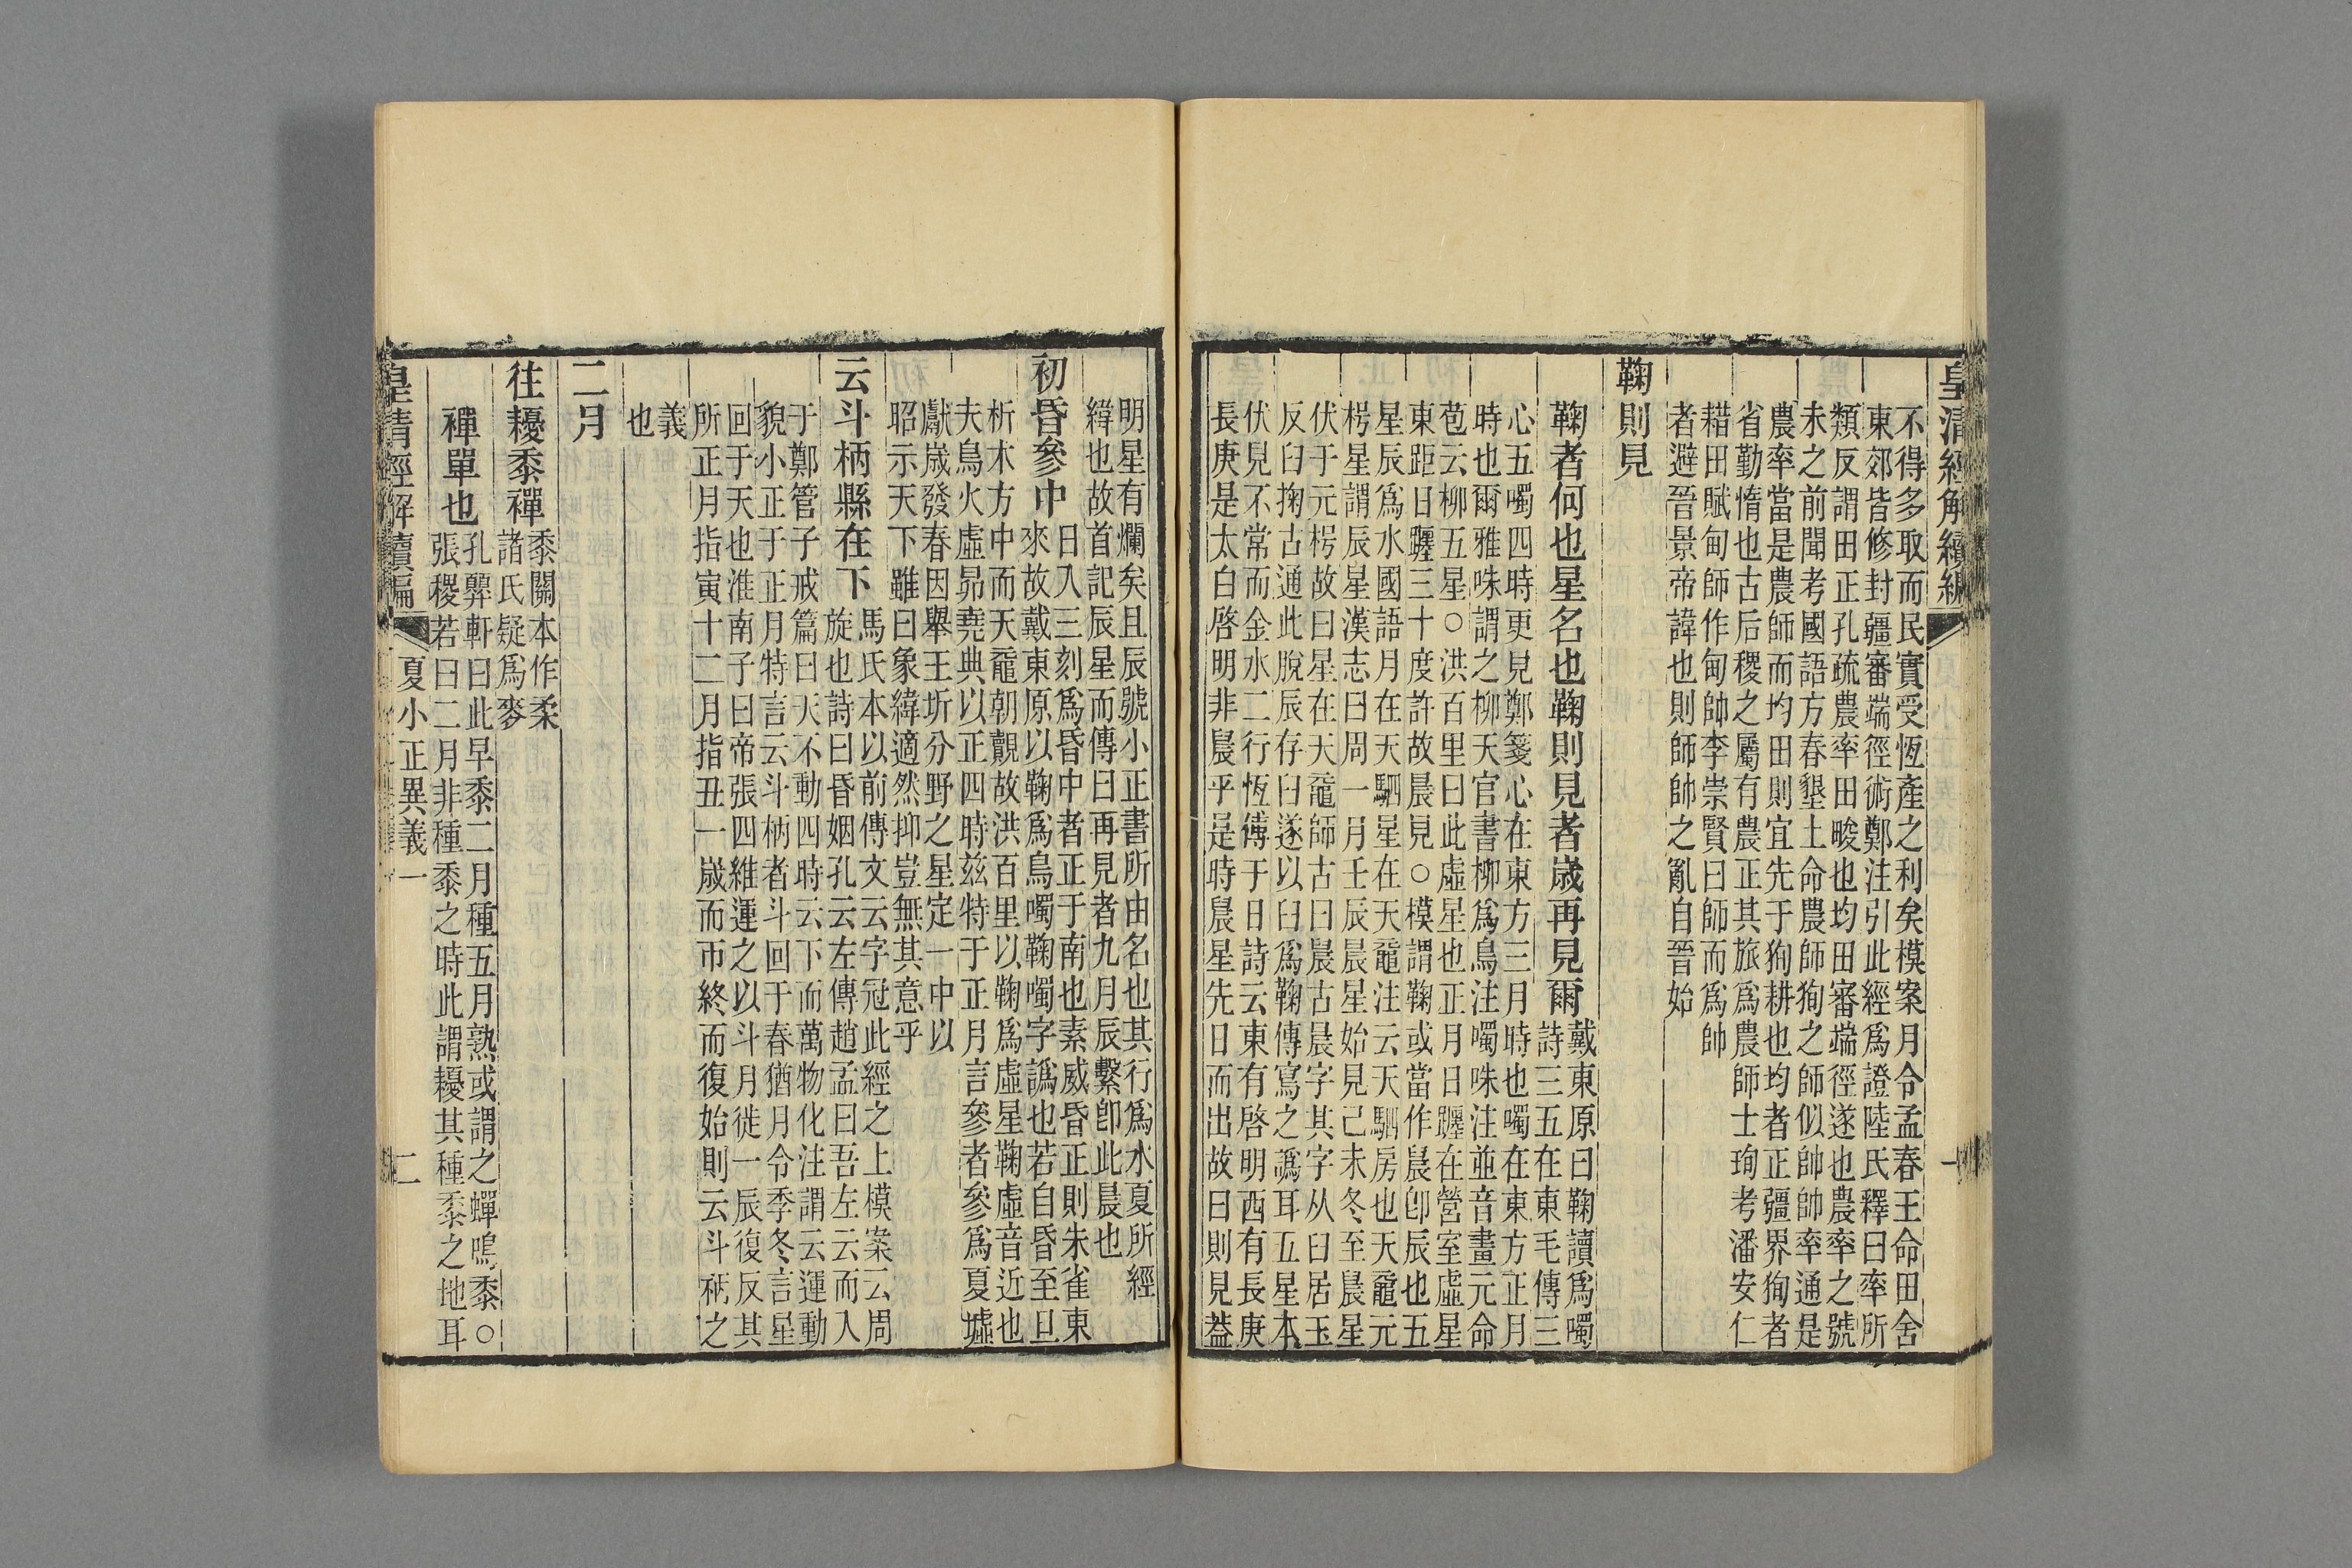 皇清經解續編
一
不得多取而民實受恆產之利矣模案月令孟春王命田舍
東郊皆修封疆審端徑術鄭注引此經爲證陸氏釋曰率所
類反謂田正孔疏農率田畯也均田審端徑遂也農率之號
未之前聞考國語方春墾土命農師狥之師似帥帥率通是
農率當是農師而均田則宜先于狥耕也均者正疆界狥者
省勤惰也古后稷之屬有農正其旅爲農師士珣考潘安仁
耤田賦甸師作甸帥李崇賢曰師而爲帥
者避晉景帝諱也則師帥之亂自晉始
鞠則見
鞠者何也星名也鞠則見者歲再見爾
戴東原曰鞠讀爲噣
詩三五在東毛傳三
心五噣四時更見鄭箋心在東方三月時也噣在東方正月
時也爾雅咮謂之柳天官書柳爲鳥注噣咮注並音晝元命
苞云柳五星○洪百里曰此虛星也正月日躔在營室虛星
東距日躔三十度許故晨見○模謂鞠或當作晨卽辰也五
星辰爲水國語月在天駟星在天黿注云天駟房也天黿元
枵星謂辰星漢志曰周一月壬辰晨星始見己未冬至晨星
伏于元枵故曰星在天黿師古曰晨古晨字其字从臼居玉
反臼掬古通此脫辰存臼遂以臼爲鞠傳寫之譌耳五星本
伏見不常而金水二行恆傅于日詩云東有啓明西有長庚
長庚是太白啓明非晨乎是時晨星先日而出故曰則見葢
明星有爛矣且辰號小正書所由名也其行爲水夏所經
緯也故首記辰星而傳曰再見者九月辰繫卽此晨也
初昏參中
日入三刻爲昏中者正于南也素威昏正則朱雀東
來故戴東原以鞠爲鳥噣鞠噣字譌也若自昏至旦
析木方中而天黿朝覿故洪百里以鞠爲虛星鞠虛音近也
夫鳥火虛昴堯典以正四時茲特于正月言參者參爲夏墟
獻歲發春因舉王圻分野之星定一中以
昭示天下雖曰象緯適然抑豈無其意乎
云斗柄縣在下
馬氏本以前傳文云字冠此經之上模案云周
旋也詩曰昏姻孔云左傳趙孟曰吾左云而入
于鄭管子戒篇曰天不動四時云下而萬物化注謂云運動
貌小正于正月特言云斗柄者斗回于春猶月令季冬言星
回于天也淮南子曰帝張四維運之以斗月徙一辰復反其
所正月指寅十二月指丑一歲而帀終而復始則云斗柄之
義
也
二月
往耰黍禪
黍關本作柔
諸氏疑爲麥
禪單也
孔顨軒曰此早黍二月種五月熟或謂之蟬鳴黍○
張稷若曰二月非種黍之時此謂耰其種黍之地耳
皇清經解續編
夏小正異義一
二